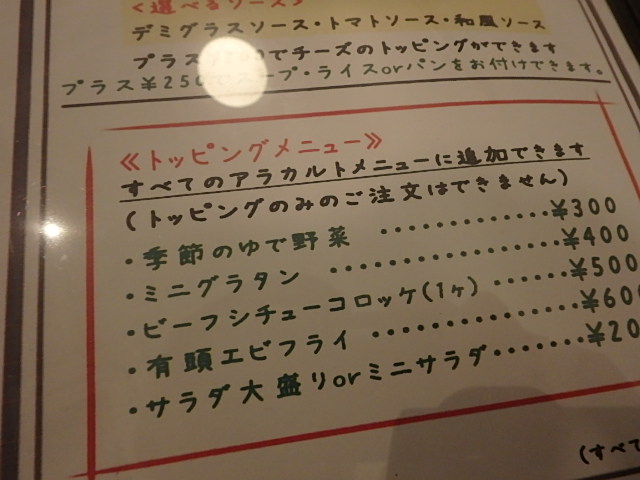 <選べるソース>
デミグラスソース・トマトソース・和風ソース
プラス でチーズのトッピングができます
プラス¥250 プ・ライスorパンをお付けできます。
≪トッピングメニュー≫
すべてのアラカルトメニューに追加できます
(トッピングのみのご注文はできません)
・季節のゆで野菜 ・・・・・・・・・・・¥300
・ミニグラタン ・・・・・・・・・・・・・・・¥400
・ビーフシチューコロッケ(1ヶ) ・・・・・・¥500
・有頭エビフライ ・・・・・・・・・・・・・¥600
・サラダ大盛りorミニサラダ・・・・・・・¥20
(すべて